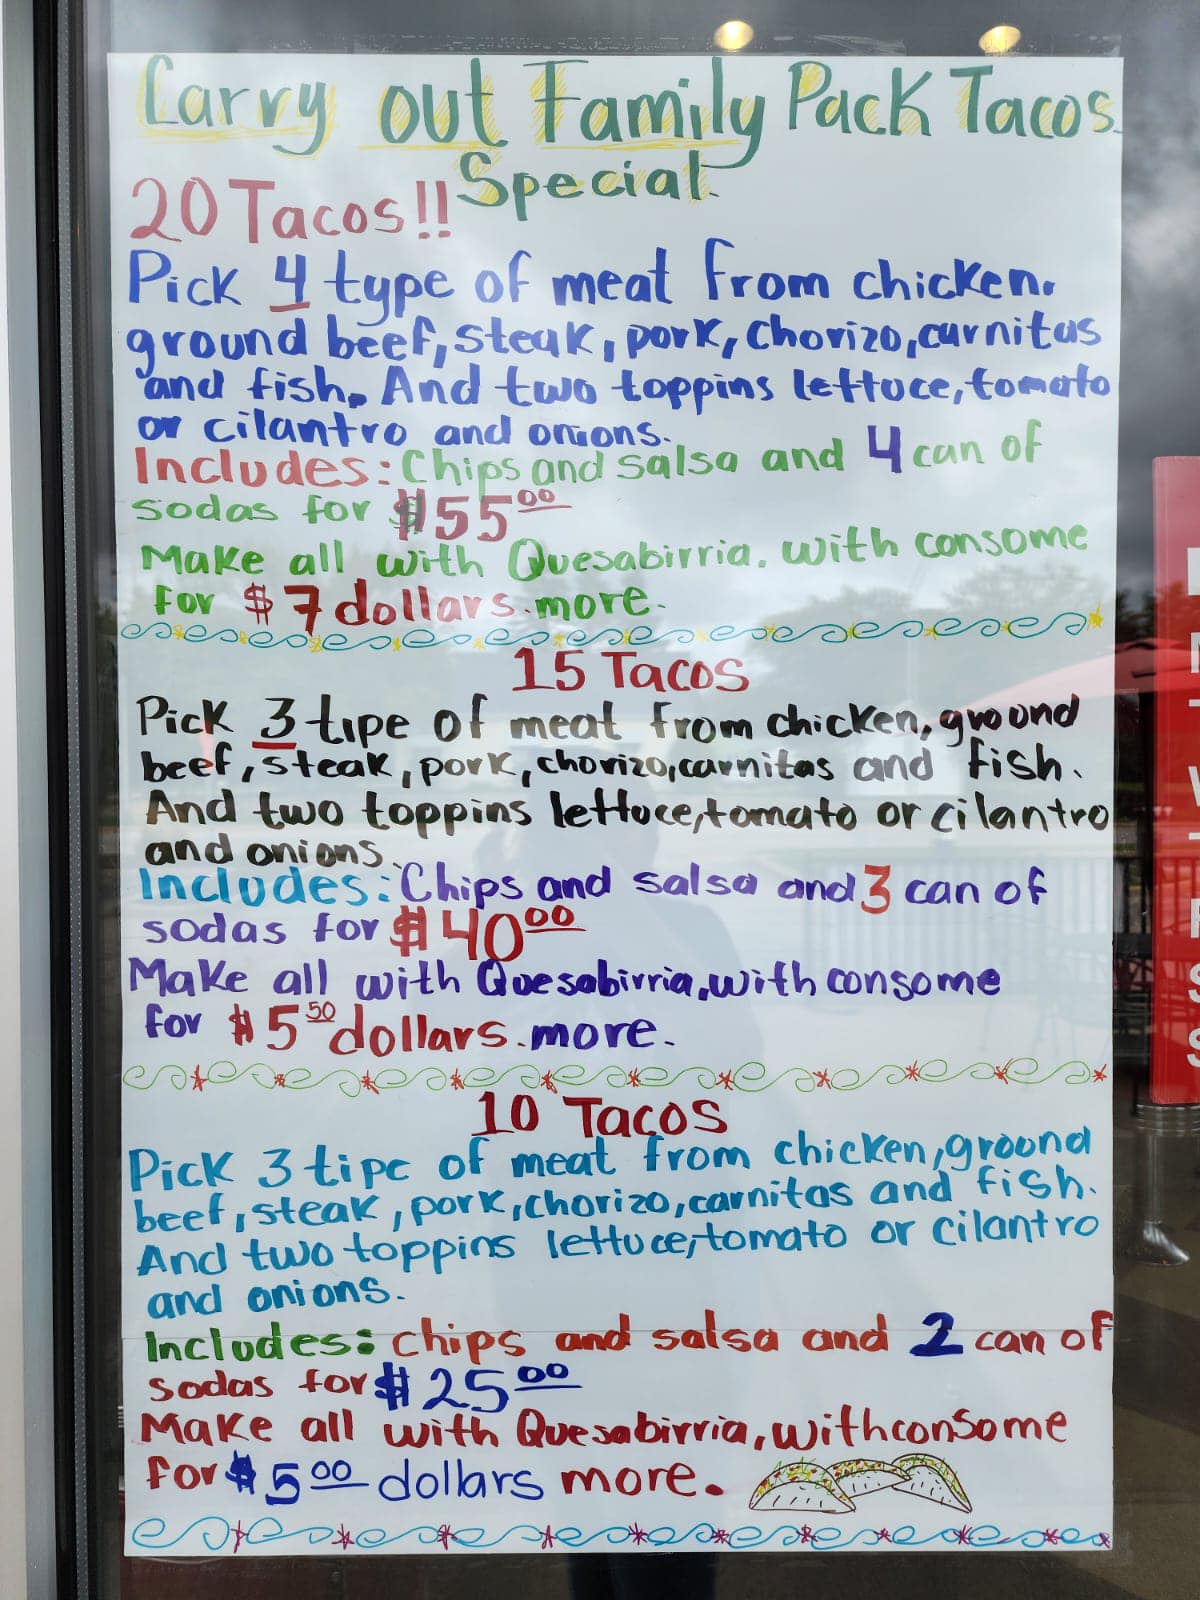 Carry out Family Pack Tacos
Special.
20 Tacos!!
Pick 4 type of meat from chicken.
ground beef, steak, pork, chorizo, carnitas
and fish. And two toppins lettuce, tomato
or cilantro and onions.
Includes: Chips and salsa and 4 can of
sodas for $55.00
Make all with Quesabirria. with consome
for $7 dollars. more.
15 Tacos
Pick 3 tipe of meat from chicken, ground
beef, steak, pork, chorizo, carnitas and fish.
And two toppins lettuce, tomato or cilantro
and onions.
Includes: Chips and salsa and 3 can of
sodas for $40.00
Make all with Quesabirria, with consome
for $5.50 dollars. more.
10 Tacos
Pick 3 tipe of meat from chicken, ground
beef, steak, pork, chorizo, carnitas and fish.
And two toppins lettuce, tomato or cilantro
and onions.
Includes: chips and salsa and 2 can of
sodas for $25.00
Make all with Quesabirria, with consome
for $5.00 dollars more.